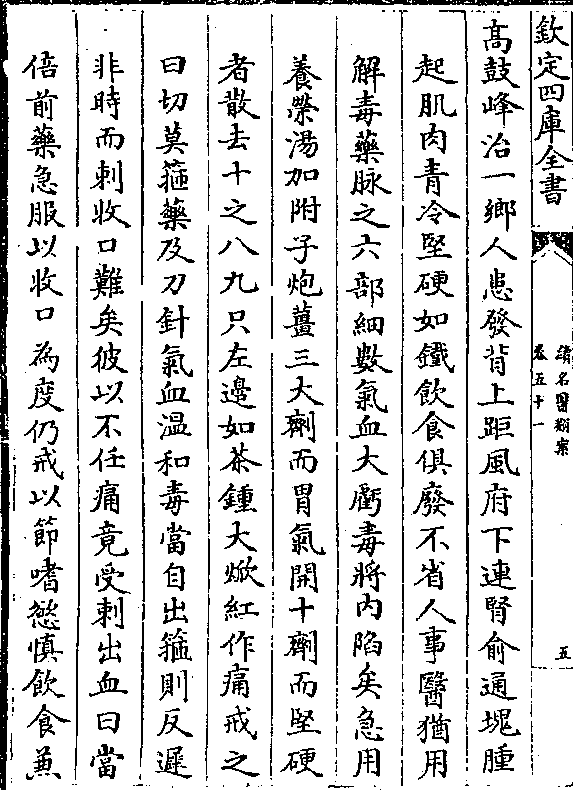 欽定四庫全書
續名醫類案
卷五十一
五
高鼓峰治一鄉人患發背上距風府下連腎俞通塊腫
起肌肉青冷堅硬如鐵飲食俱廢不省人事醫猶用
解毒藥脉之六部細數氣血大虧毒將内陷矣急用
養榮湯加附子炮薑三大劑而胃氣開十劑而堅硬
者散去十之八九只左邊如茶鍾大焮紅作痛戒之
曰切莫箍藥及刀針氣血温和毒當自出箍則反遲
非時而刺收口難矣彼以不任痛竟受刺出血曰當
倍前藥急服以收口為度仍戒以節嗜慾慎飲食兼